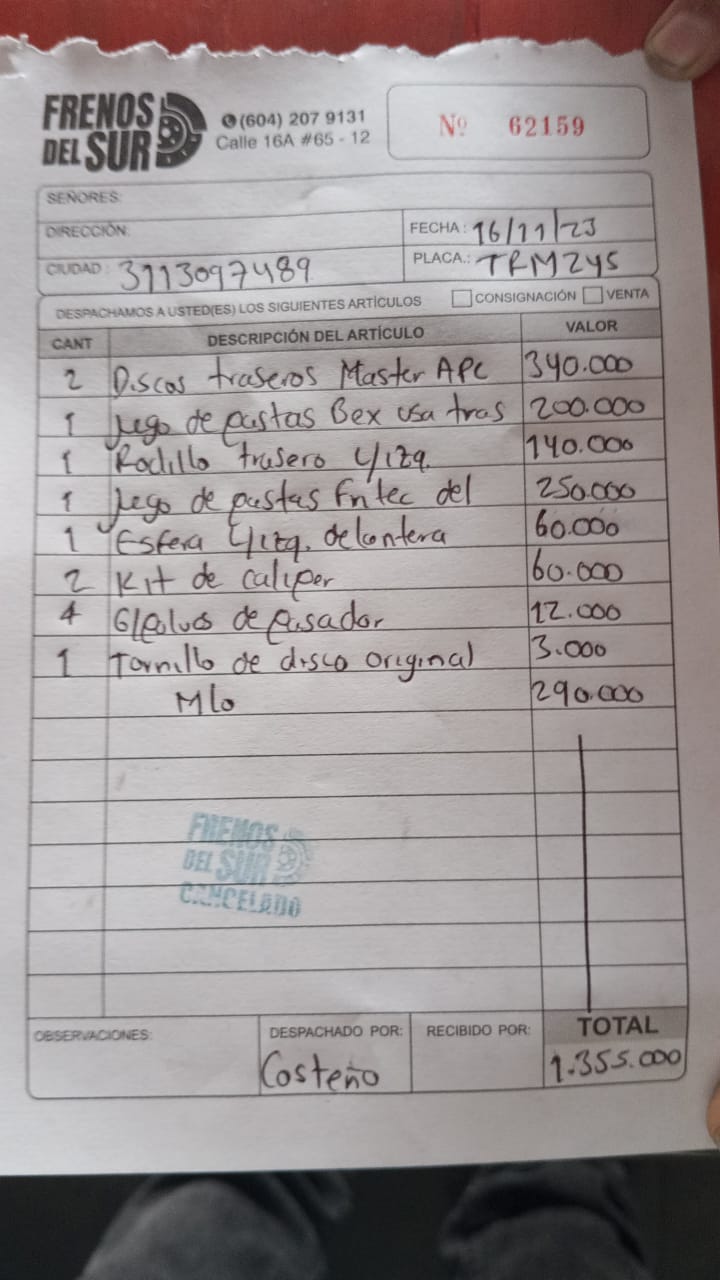 FRENOS DEL SUR
(604) 207 9131
Calle 16A #65 - 12
Nº 62159
SEÑORES:
DIRECCIÓN:
FECHA: 16/11/23
CIUDAD: 3113097489
PLACA.: TRM245
DESPACHAMOS A USTED(ES) LOS SIGUIENTES ARTÍCULOS CONSIGNACIÓN VENTA
CANT DESCRIPCIÓN DEL ARTÍCULO VALOR
2 Discos traseros Master APC 340.000
1 Juego de pastas Bex usa tras 200.000
1 Rodillo trasero L/izq. 140.000
1 Juego de pastas Fritec del 250.000
1 Esfera L/izq. delantera 60.000
2 Kit de caliper 60.000
4 de pasador 12.000
1 Tornillo de disco original 3.000
M/o 290.000
FRENOS
DEL SUR
CANCELADO
OBSERVACIONES:
DESPACHADO POR: Costeño
RECIBIDO POR:
TOTAL
1.355.000